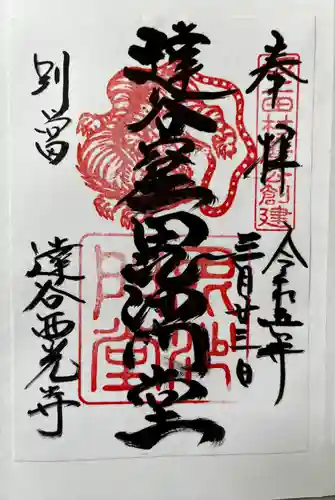 奉拝
令和五年
三月廿三日
達谷窟毘沙門堂
別當
達谷西光寺
創建